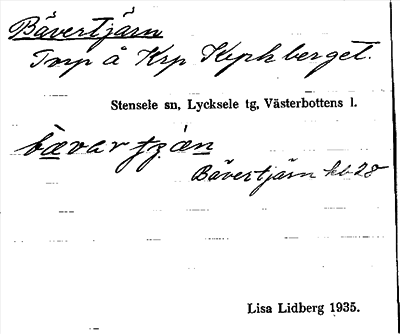 Bävertjärn
Tmp å Krp Kyrkberget.
Stensele sn, Lycksele tg, Västerbottens l.
bævartjæn
Bävertjärn kb 28
Lisa Lidberg 1935.